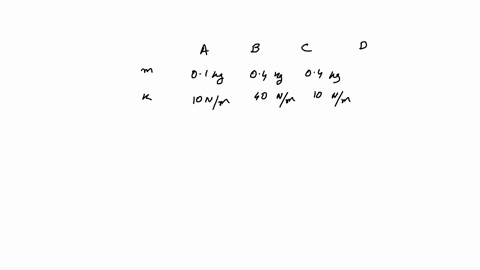 A B C D
m 0.1 kg 0.4 kg 0.4 kg
k 10 N/m 40 N/m 10 N/m